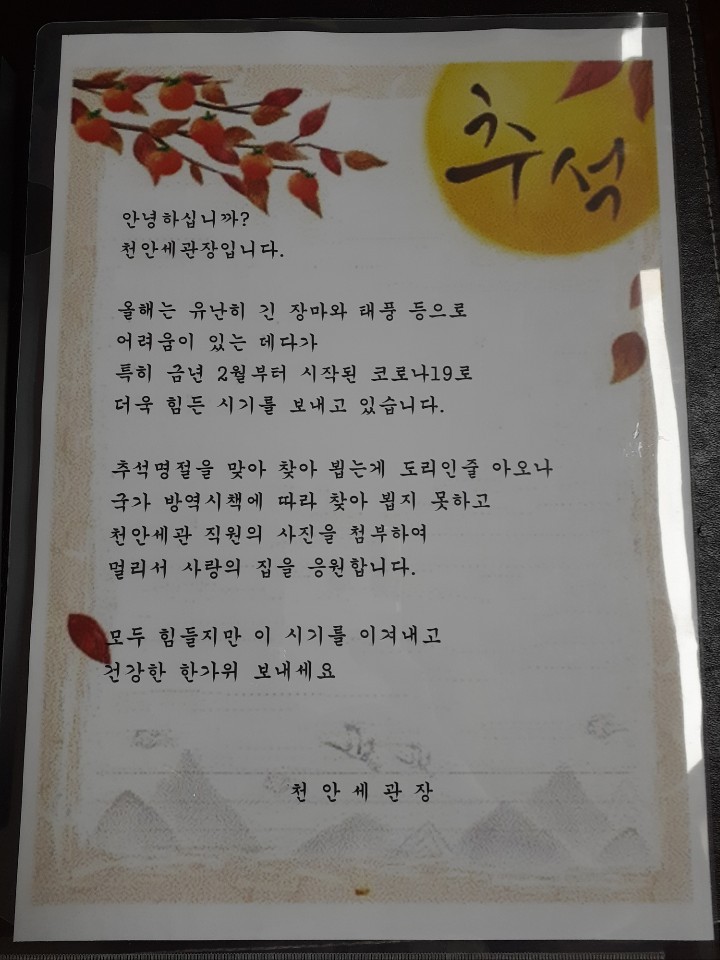 추석
안녕하십니까?
천안세관장입니다.
올해는 유난히 긴 장마와 태풍 등으로
어려움이 있는 데다가
특히 금년 2월부터 시작된 코로나19로
더욱 힘든 시기를 보내고 있습니다.
추석명절을 맞아 찾아 뵙는게 도리인줄 아오나
국가 방역시책에 따라 찾아 뵙지 못하고
천안세관 직원의 사진을 첨부하여
멀리서 사랑의 집을 응원합니다.
모두 힘들지만 이 시기를 이겨내고
건강한 한가위 보내세요
천 안 세 관 장